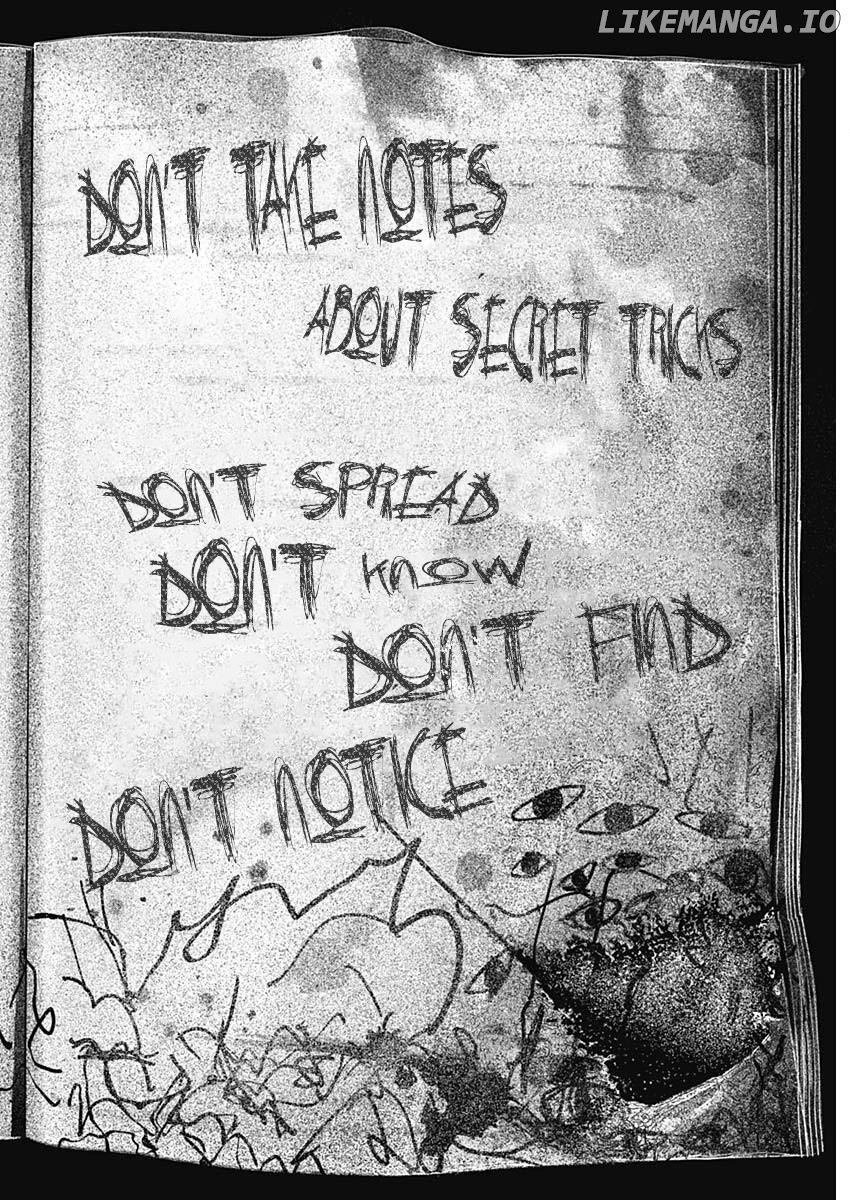 LIKEMANGA.IO
DON'T TAKE NOTES
ABOUT SECRET TRICKS
DON'T SPREAD
DON'T KNOW
DON'T FIND
DON'T NOTICE